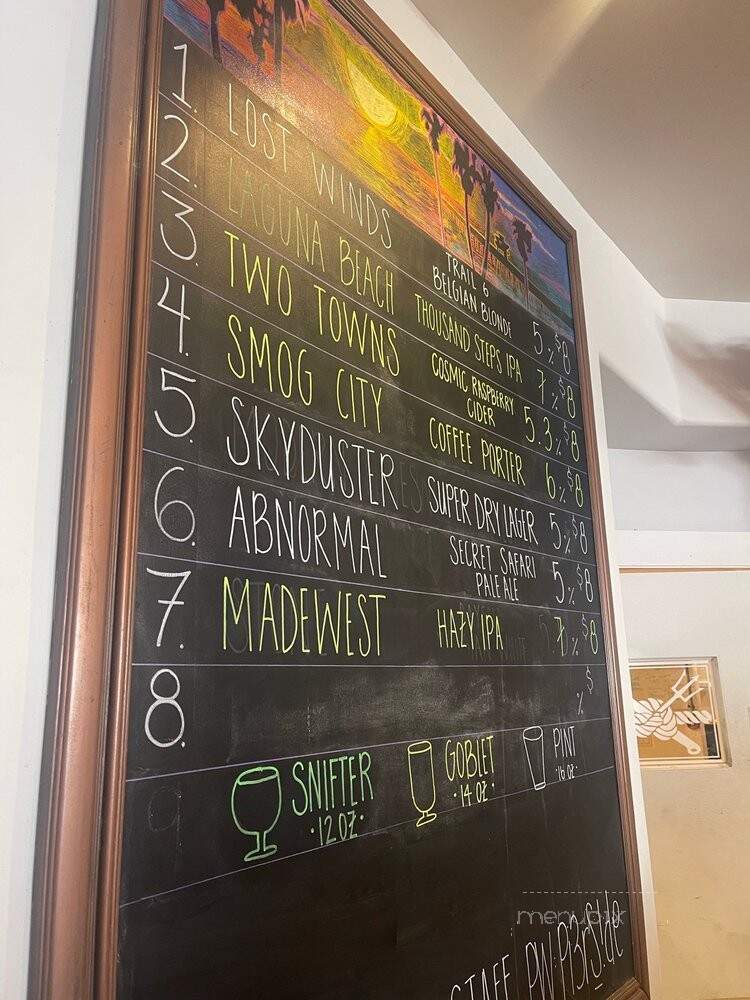 1. LOST WINDS TRAIL 6 BELGIAN BLONDE 5% $8
2. LAGUNA BEACH THOUSAND STEPS IPA 7% $8
3. TWO TOWNS COSMIC RASPBERRY CIDER 5.3% $8
4. SMOG CITY COFFEE PORTER 6% $8
5. SKYDUSTER SUPER DRY LAGER 5% $8
6. ABNORMAL SECRET SAFARI PALE ALE 5% $8
7. MADEWEST HAZY IPA 7% $8
8. % $
9
SNIFTER
·12 OZ·
GOBLET
·14 OZ·
PINT
·16 OZ·
STAFF PW: P13rS!de
menupix